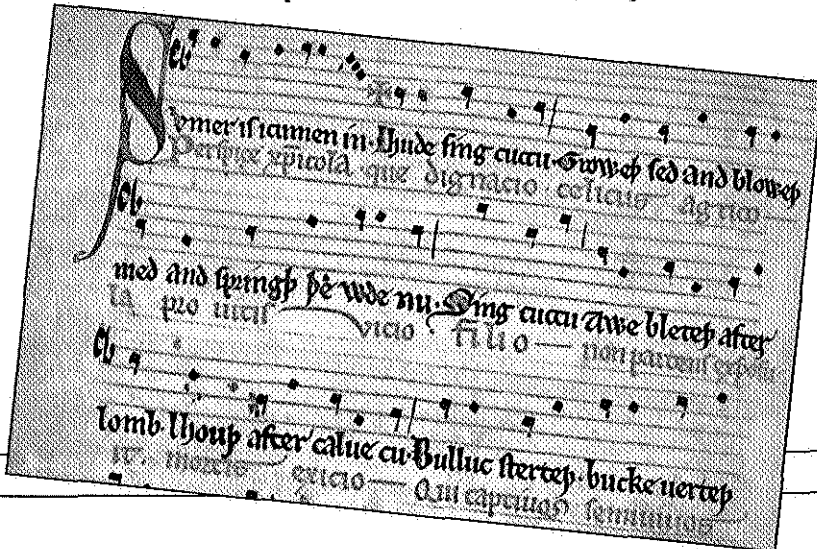 Svmer iſ icumen in · Lhude ſing cuccu · Groweþ ſed and bloweþ
Perſpice xp̄icola que dignacio celicus agrico
med and ſpringþ þe wde nu · Sing cuccu Awe bleteþ after
la pro uitiſ vicio filio non parcenſ expoſu
lomb lhouþ after calue cu · Bulluc ſterteþ · bucke uerteþ
it mortis exicio Qui captiuos ſemiuiuos